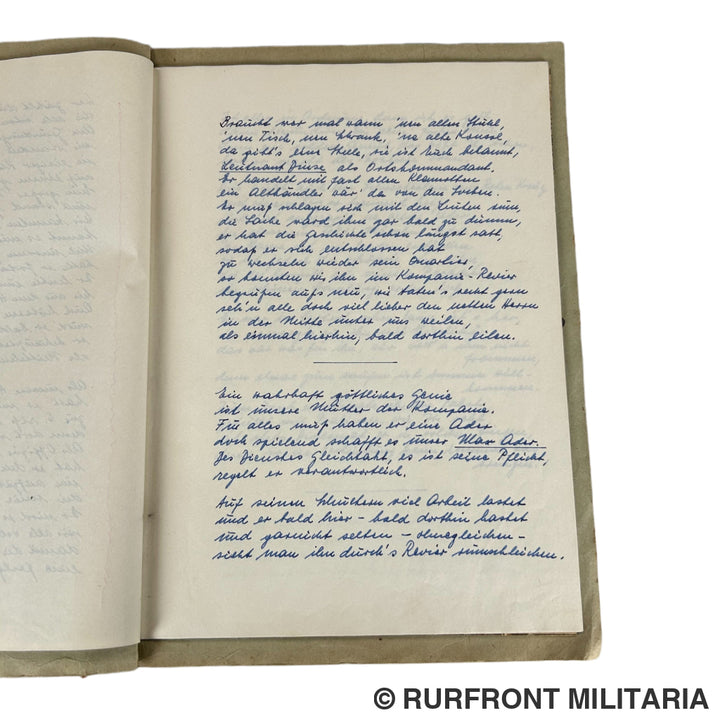 Braucht wer mal wann 'nen alten Stuhl,
'nen Tisch, nen Schrank, 'ne alte Konsol,
da gibt's eine Stele, sie ist Euch bekannt,
Leutnant Druse als Ortskommandant.
Er handelt mit fast allen Klamotten
ein Althändler wär' da von den
Er muß schlagen sich mit den Leuten rum,
die Sache ward ihm gar bald zu dumm,
er hat die Geschichte schon längst satt,
sodaß er sich entschlossen hat
zu wechseln wieder sein Quartier,
so konnten wir ihn im Kompanie-Revier
begrüßen aufs neu, wir taten's recht gern
seh'n alle doch viel lieber den netten Herrn
in der Mitte unter uns weilen,
als einmal hierhin, bald dorthin eilen.
Ein wahrhaft göttliches Genie
ist unsere Mutter der Kompanie.
Für alles muß haben er eine Ader
doch spielend schafft es unser Max Ader.
Des Dienstes Gleichtakt, es ist seine Pflicht,
regelt er verantwortlich.
Auf seinen Schultern viel Arbeit lastet
und er bald hier - bald dorthin hastet
und garnicht selten - ohnegleichen -
sieht man ihn durch's Revier rumschleichen.
© RURFRONT MILITARIA